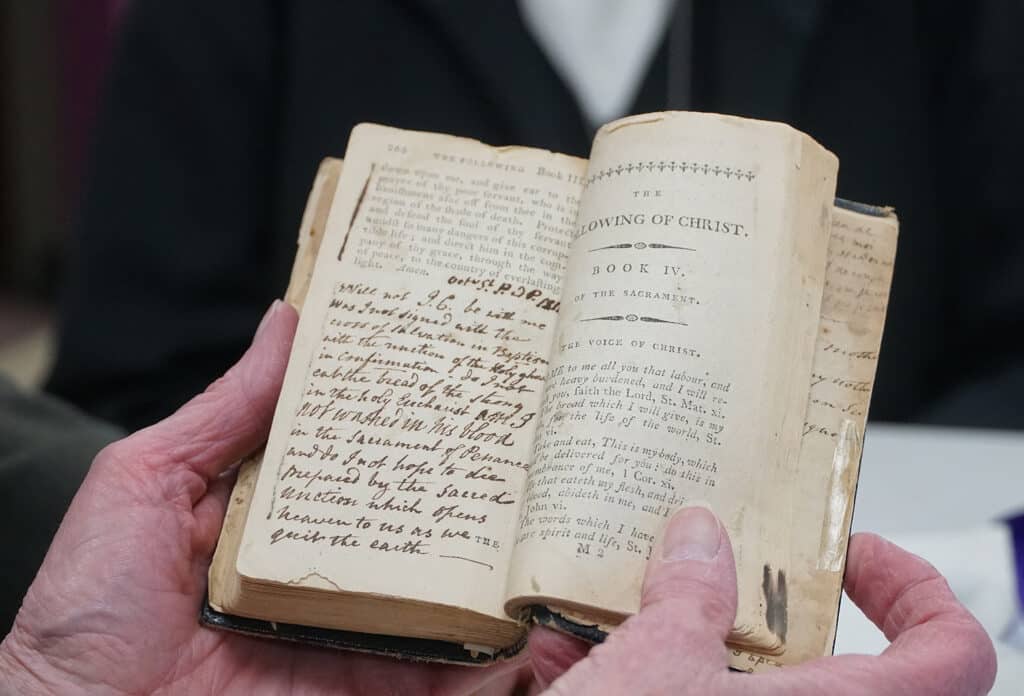 THE FOLLOWING Book III.
down upon me, and give ear to the
prayer of thy poor servant, who is in
banishment afar off from thee in the
region of the shade of death. Protect
and defend the soul of thy servant
amidst so many dangers of this corrup-
tible life; and direct him in the com-
pany of thy grace, through the way
of peace, to the country of everlasting
light. Amen.
Will not J.C. be with me
was I not signed with the
cross of Salvation in Baptism
with the unction of the Holy ghost
in Confirmation do I not
eat the bread of the strong
in the Holy Eucharist was I
not washed in his blood
in the Sacrament of Penance
and do I not hope to die
prepared by the sacred
unction which opens
heaven to us as we
quit the earth
THE
THE
LLOWING OF CHRIST.
BOOK IV.
OF THE SACRAMENT.
THE VOICE OF CHRIST.
ME to me all you that labour, and
heavy burdened, and I will re-
you, saith the Lord, St. Mat. xi.
bread which I will give, is my
for the life of the world, St.
vi.
Take and eat, This is my body, which
be delivered for you: do this in
mbrance of me, 1 Cor. xi.
that eateth my flesh, and dri
blood, abideth in me, and I
John vi.
The words which I have
are spirit and life, St. J
M 2